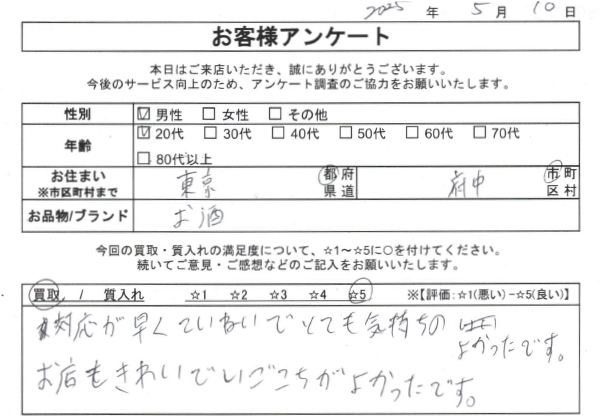 2025 年 5 月 10 日
お客様アンケート
本日はご来店いただき、誠にありがとうございます。
今後のサービス向上のため、アンケート調査のご協力をお願いいたします。
性別 ☑ 男性 ☐ 女性 ☐ その他
年齢 ☑ 20代 ☐ 30代 ☐ 40代 ☐ 50代 ☐ 60代 ☐ 70代
☐ 80代以上
お住まい ※市区町村まで 東京 都府県道 府中 市町区村
お品物/ブランド お酒
今回の買取・質入れの満足度について、☆1～☆5に○を付けてください。
続いてご意見・ご感想などのご記入をお願いいたします。
買取 / 質入れ ☆1 ☆2 ☆3 ☆4 ☆5 ※【評価:☆1(悪い)−☆5(良い)】
対応が早くていねいでとても気持ちの
よかったです。
お店もきれいでいごこちがよかったです。